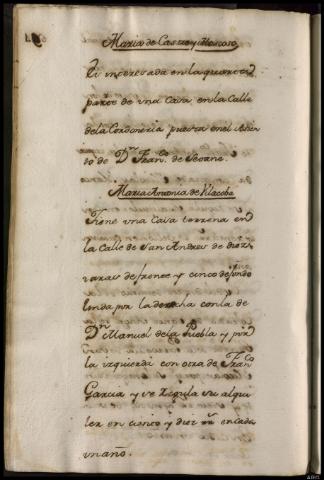 Maria de Castro y Moscoso
Es interesada en la quarta
parte de una Casa, en la Calle
de la Cordoneria puesta en el Asien
to de Dn. Franco. de Seoane.
Maria Antonia de Vilacoba
Tiene una Casa terrena en
la Calle de San Andres de diez
varas de frente y cinco de fondo
linda por la derecha con la de
Dn. Manuel de la Puebla y por
la izquierda con otra de Franco.
Garcia y se regula su alqui
ler en cinco y diez rrs. en cada
un año.